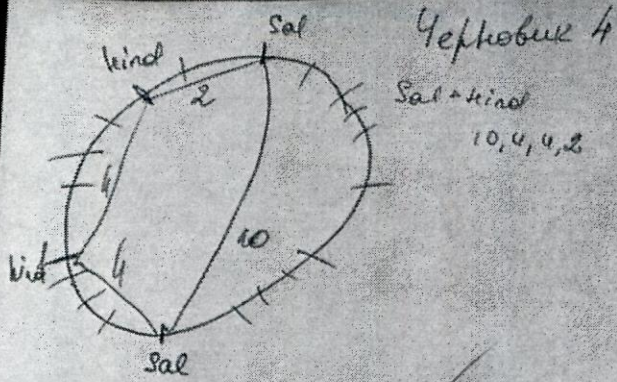 Черновик 4
Sal
Hind
2
Sal + Hind
10, 4, 4, 2
4
10
Hind
4
Sal